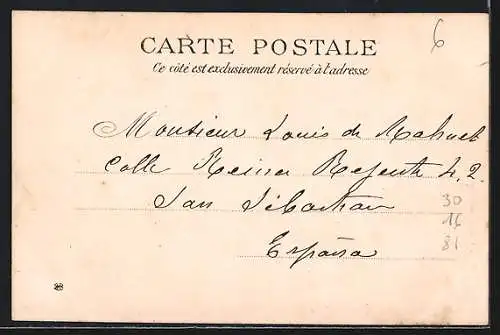 6
CARTE POSTALE
Ce côté est exclusivement réservé à l'adresse
Monsieur Louis de
Calle Reina Regente 4, 2
San Sébastian
España
30
16
81